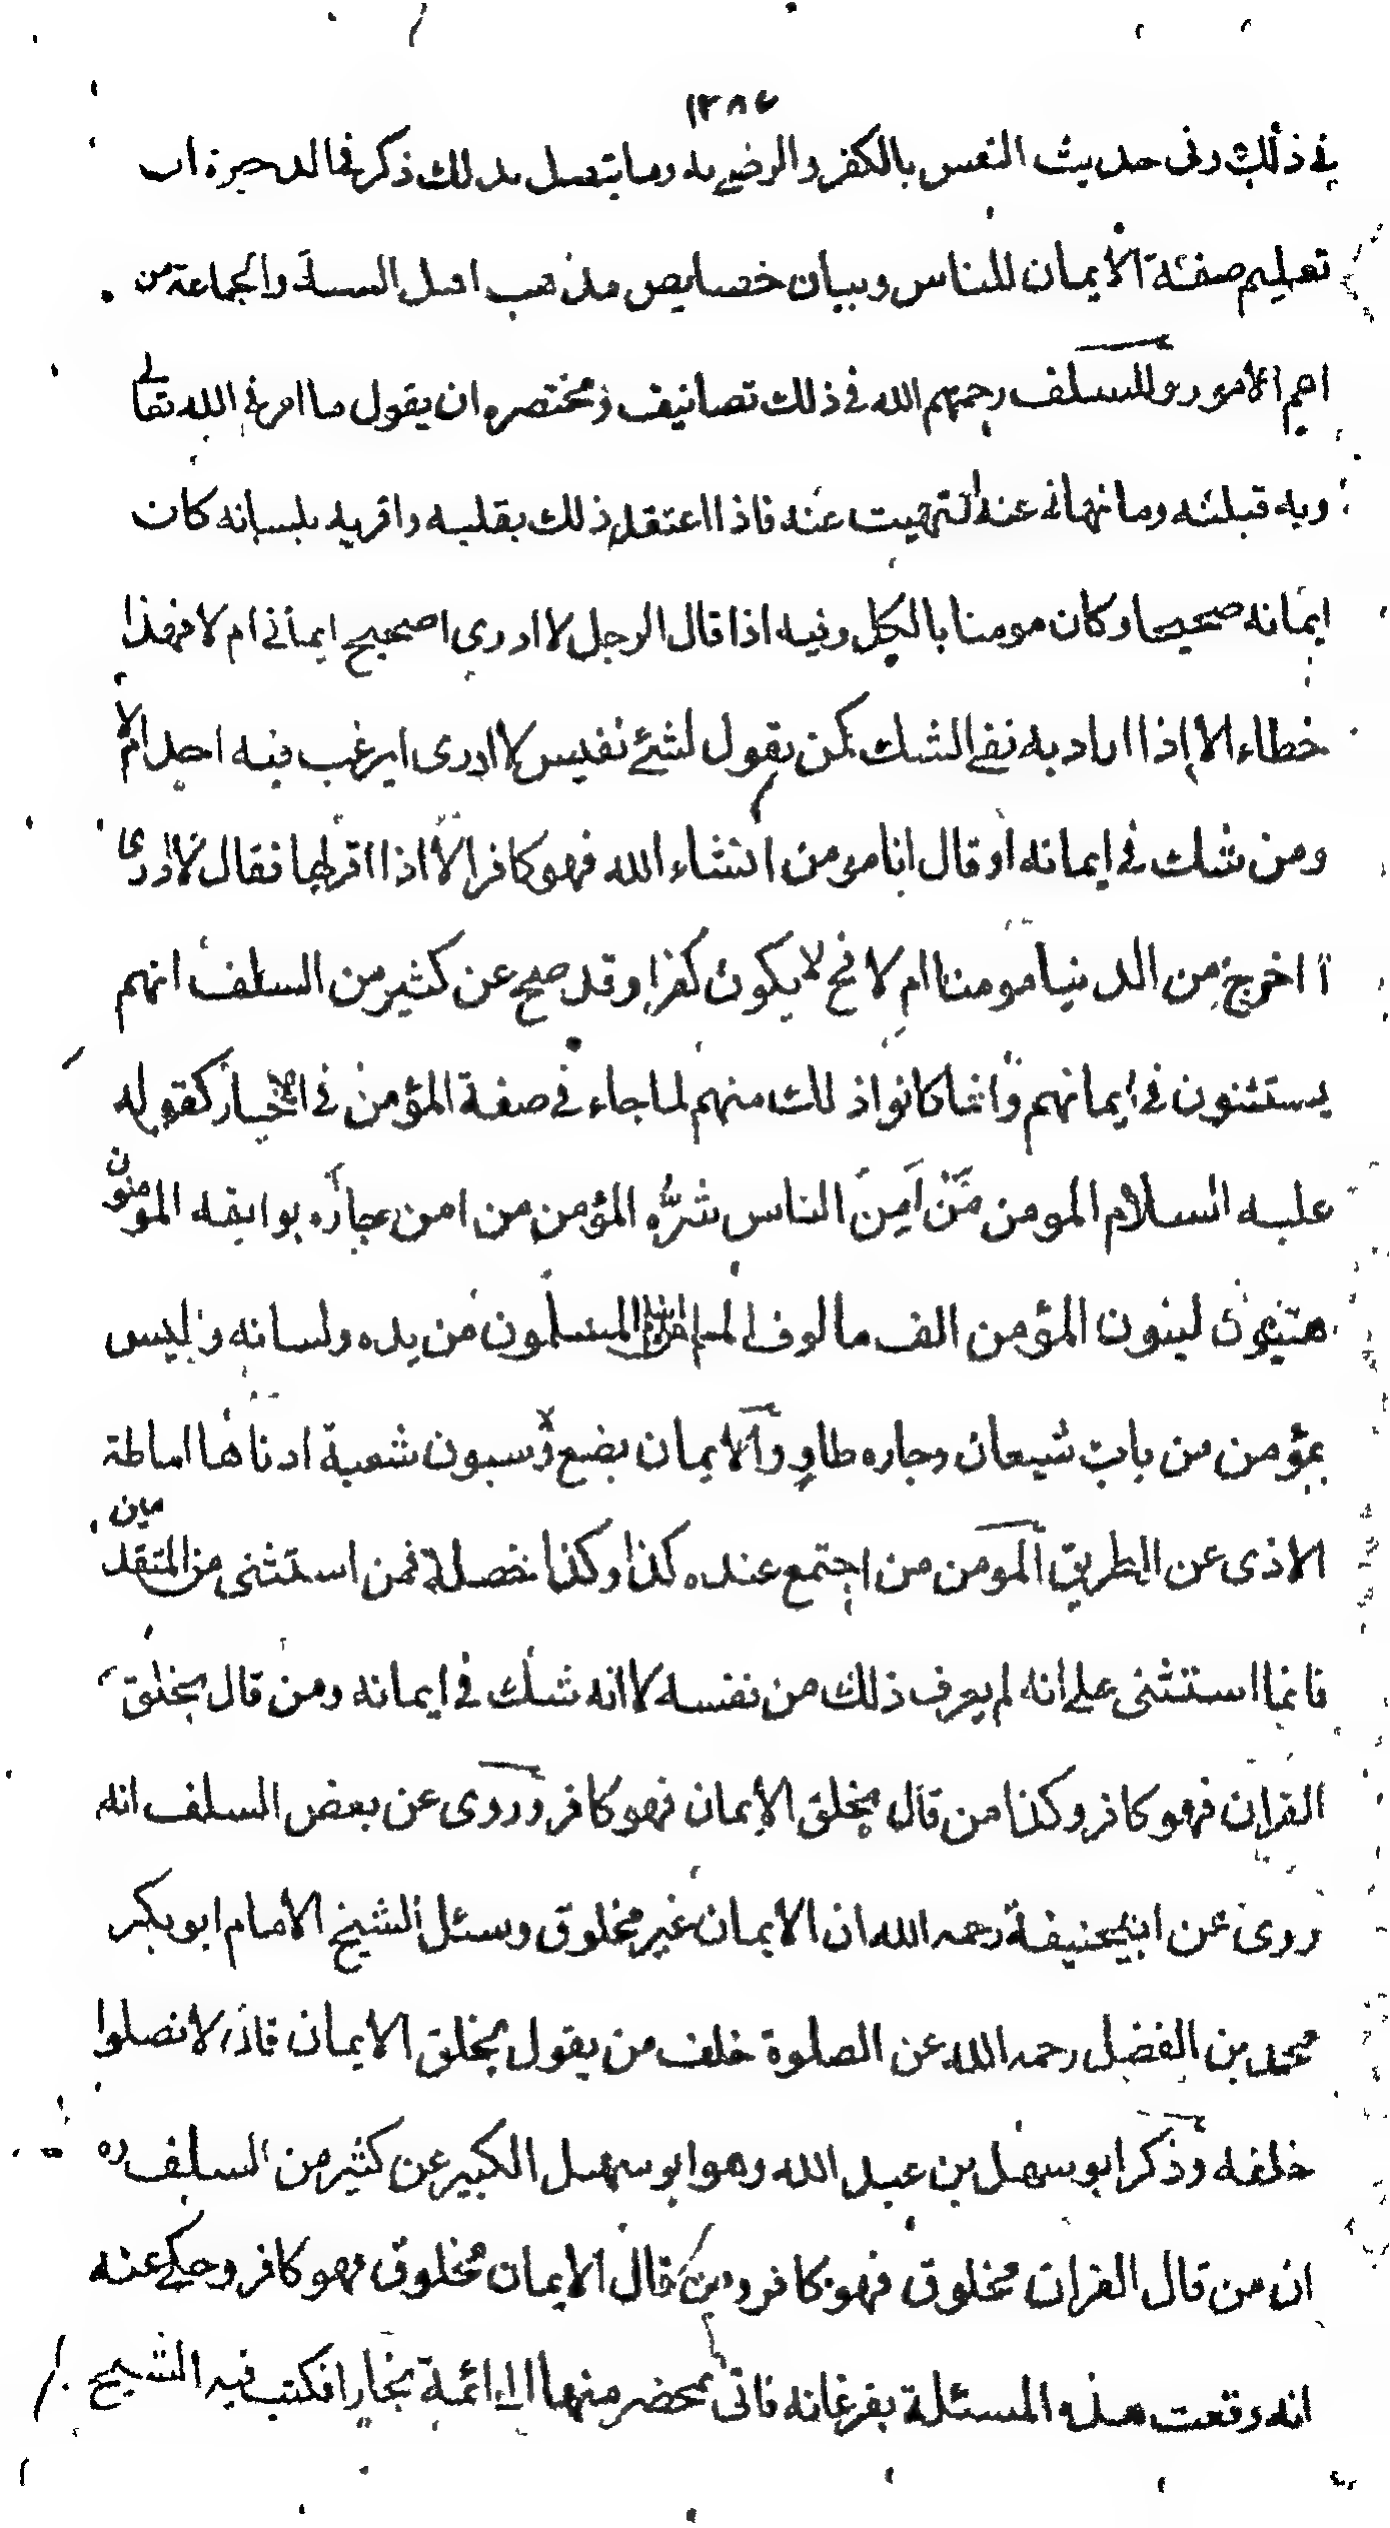 ١٢٨٧
في ذلك وفي حديث النفس بالكفر والرضي به وما يتصل بذلك ذكر في الذخيرة ان
تعليم صفة الايمان للناس وبيان خصايص مذهب اهل السنة والجماعة من
اهم الامور وللسلف رحمهم الله في ذلك تصانيف ومختصره ان يقول ما امرني الله تعالى
وبه قبلته وما نهاني عنه انتهيت عنه فاذا اعتقد ذلك بقلبه واقر به بلسانه كان
ايمانه صحيحا وكان مومنا بالكل وفيه اذا قال الرجل لا ادرى اصحيح ايماني ام لا فهذا
خطاء الا اذا اراد به نفي الشك كمن يقول لشئ نفيس لا ادرى ايرغب فيه احد ام لا
ومن شك في ايمانه او قال انا مومن انشاء الله فهو كافر الا اذا اقر بها فقال لا ادرى
أ اخرج من الدنيا مومنا ام لا فح لا يكون كفرا وقد صح عن كثير من السلف انهم
يستثنون في ايمانهم وانما كانوا ذلك منهم لما جاء في صفة المؤمن في الاخبار كقوله
عليه السلام المومن مَنْ اَمِنَ الناس شرُّه المؤمن من امن جاره بوايقه المومنون
هينون لينون المؤمن الف مالوف المسلم المسلمون من يده ولسانه وليس
بمؤمن من بات شبعان وجاره طاوٍ والايمان بضع وسبعون شعبة ادناها اماطة
الاذى عن الطريق المومن من اجتمع عنده كذا وكذا خصلة فمن استثنى من المتقدمين
فانما استثنى على انه لم يعرف ذلك من نفسه لا انه شك في ايمانه ومن قال بخلق
القران فهو كافر وكذا من قال بخلق الايمان فهو كافر وروى عن بعض السلف انه
روى عن ابيحنيفة رحمه الله ان الايمان غير مخلوق وسئل الشيخ الامام ابو بكر
محمد بن الفضل رحمه الله عن الصلوة خلف من يقول بخلق الايمان قال لا تصلوا
خلفه وذكر ابو سهل بن عبد الله وهو ابو سهل الكبير عن كثير من السلف ره
ان من قال القران مخلوق فهو كافر ومن قال الايمان مخلوق فهو كافر وحكى عنه
انه وقعت هذه المسئلة بفرغانه فاتى بمحضر منها الى ائمة بخارا فكتب فيه الشيخ